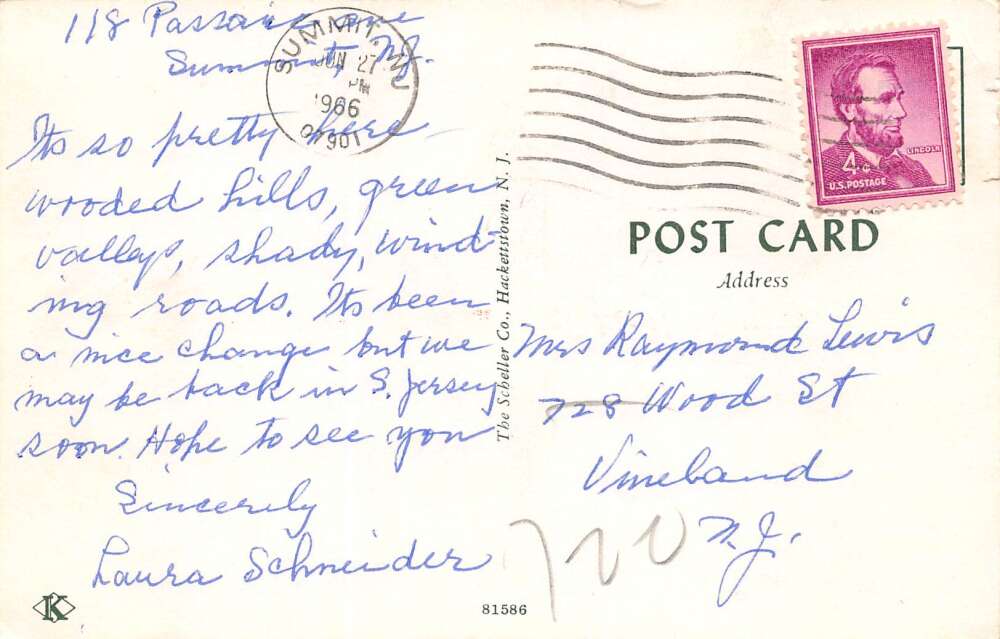 118 Passaic Ave
Summit, NJ.
SUMMIT, NJ
JUN 27
PM
1966
07901
Its so pretty here
wooded hills, green
valleys, shady, wind-
ing roads. Its been
a nice change but we
may be back in S. Jersey
soon. Hope to see you
Sincerely
Laura Schneider
K
The Scheller Co., Hackettstown, N. J.
81586
LINCOLN
4¢
U.S. POSTAGE
POST CARD
Address
Mrs Raymond Lewis
728 Wood St
Vineland
N.J.
720